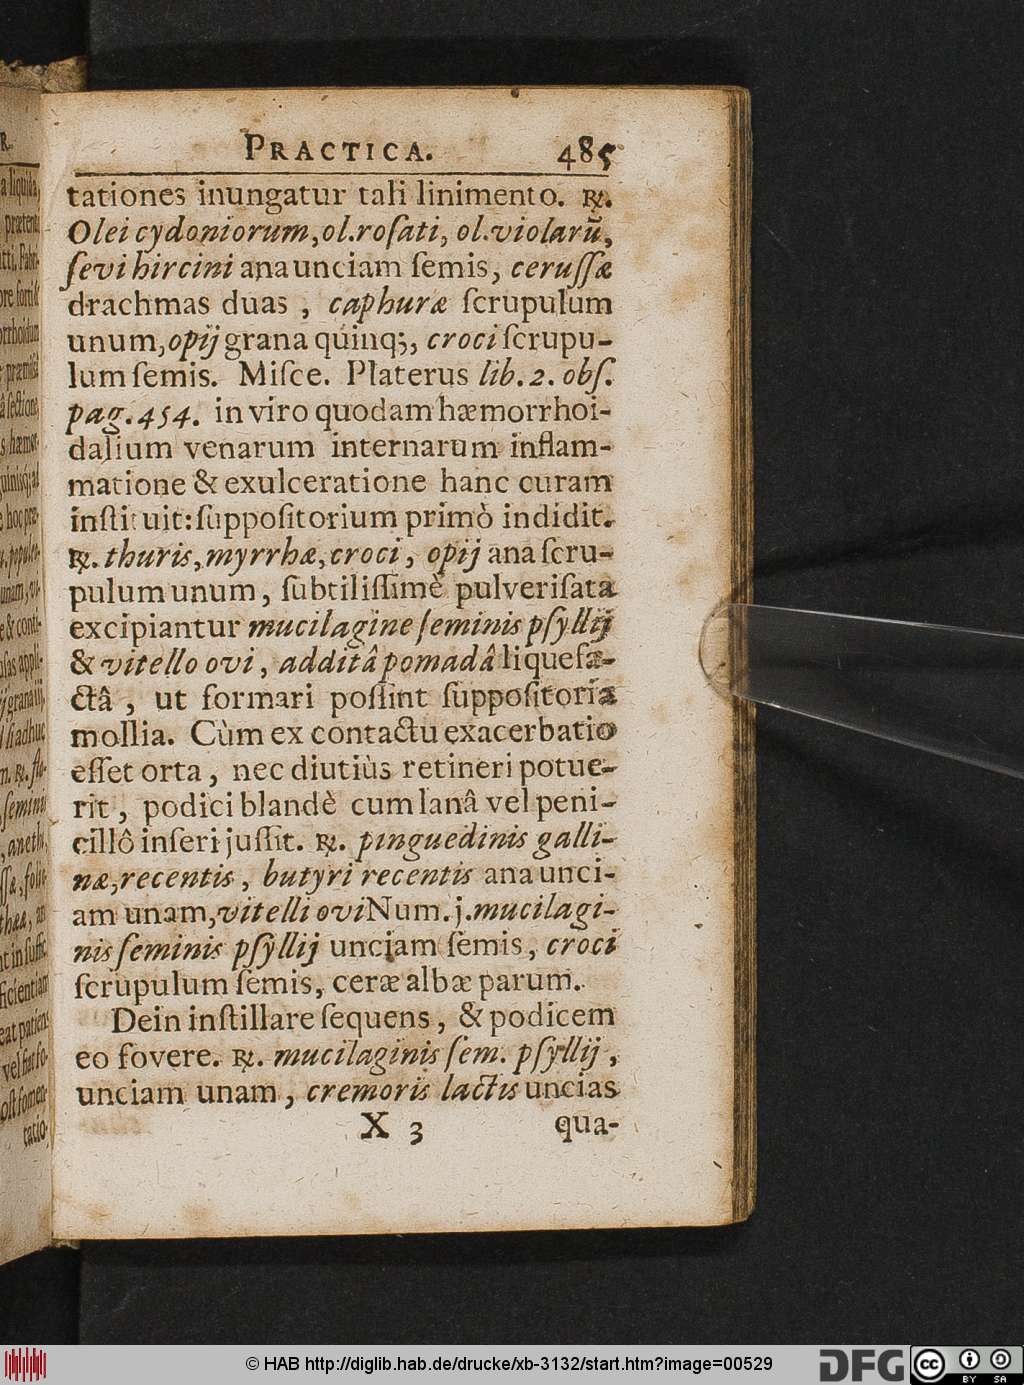 PRACTICA. 485
tationes inungatur tali linimento. ℞.
Olei cydoniorum, ol. rosati, ol. violarũ,
ſevi hircini ana unciam ſemis, ceruſſæ
drachmas duas, caphuræ ſcrupulum
unum, opij grana quinq;, croci ſcrupu-
lum ſemis. Miſce. Platerus lib. 2. obſ.
pag. 454. in viro quodam hæmorrhoi-
dalium venarum internarum inflam-
matione & exulceratione hanc curam
inſtituit: ſuppoſitorium primò indidit.
℞. thuris, myrrhæ, croci, opij ana ſcru-
pulum unum, ſubtiliſſimè pulveriſata
excipiantur mucilagine ſeminis pſyllij
& vitello ovi, additâ pomadâ liquefa-
ctâ, ut formari poſſint ſuppoſitoria
mollia. Cùm ex contactu exacerbatio
eſſet orta, nec diutiùs retineri potue-
rit, podici blandè cum lanâ vel peni-
cillô inſeri juſſit. ℞. pinguedinis galli-
næ, recentis, butyri recentis ana unci-
am unam, vitelli ovi Num. j. mucilagi-
nis ſeminis pſyllij unciam ſemis, croci
ſcrupulum ſemis, ceræ albæ parum.
Dein inſtillare ſequens, & podicem
eo fovere. ℞. mucilaginis ſem. pſyllij,
unciam unam, cremoris lactis uncias
X 3 qua-
© HAB http://diglib.hab.de/drucke/xb-3132/start.htm?image=00529
DFG
CC BY SA